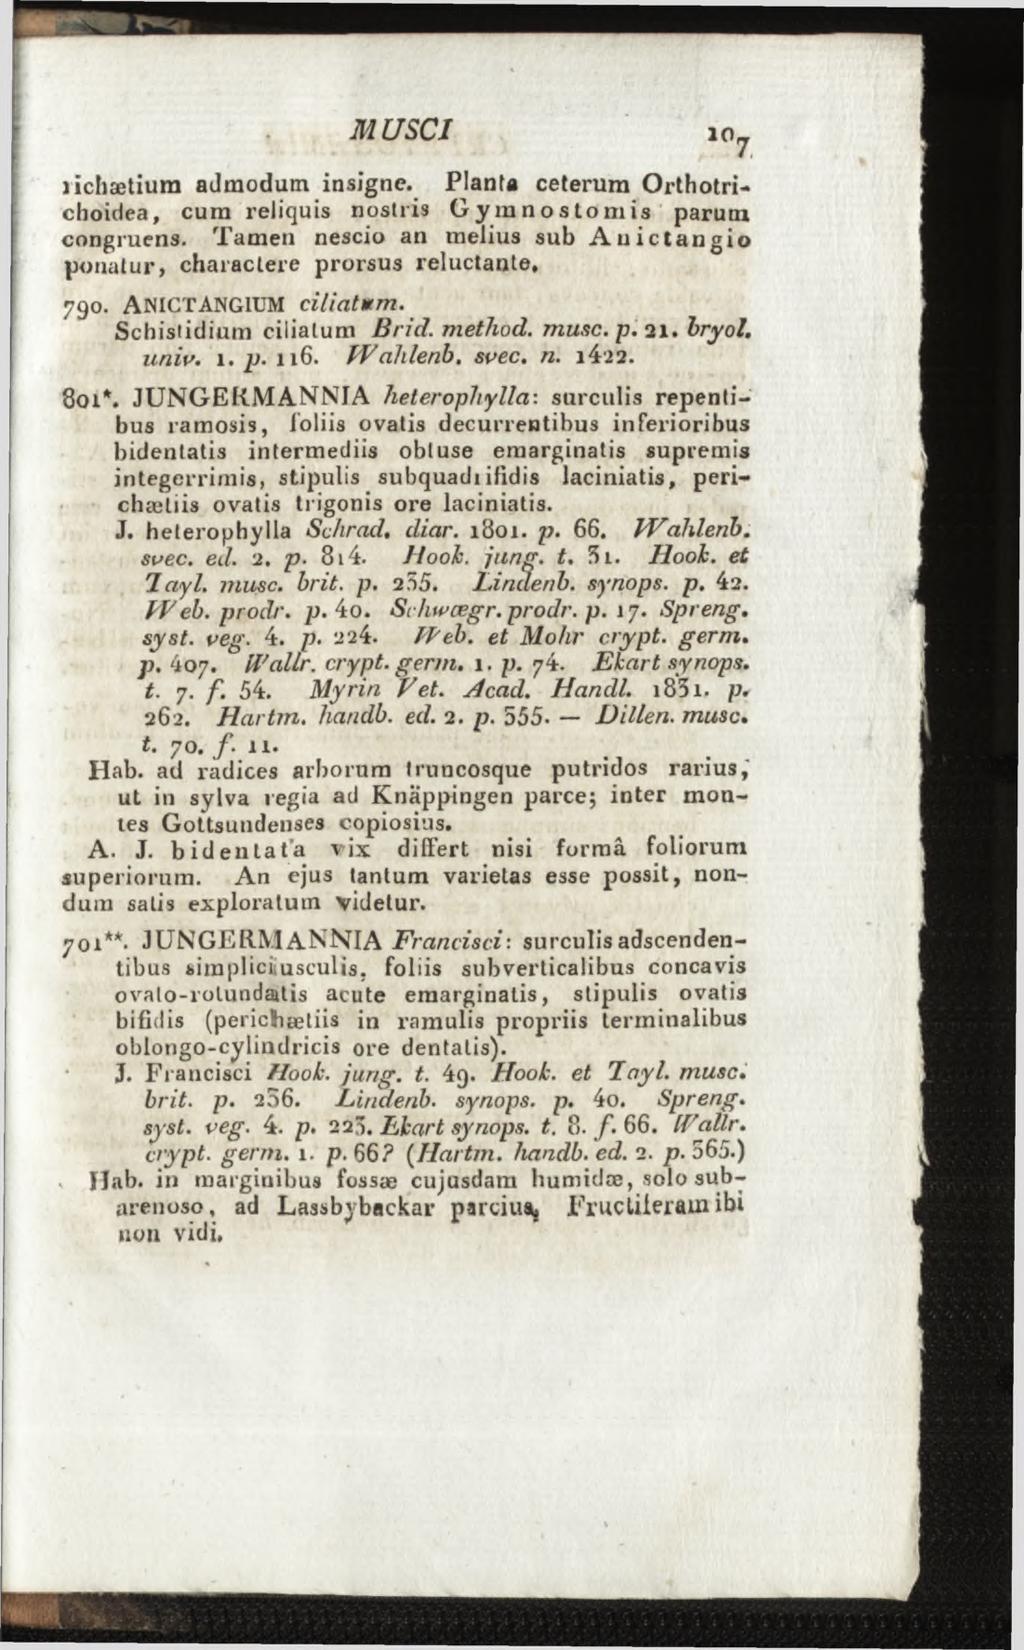 MUSCI 107
richætium admodum insigne. Planta ceterum Orthotri-
choidea, cum reliquis nostris Gymnostomis parum
congruens. Tamen nescio an melius sub Anictangio
ponatur, charactere prorsus reluctante.
790. ANICTANGIUM ciliatum.
Schistidium ciliatum Brid. method. musc. p. 21. bryol.
univ. 1. p. 116. Wahlenb. svec. n. 1422.
801*. JUNGERMANNIA heterophylla: surculis repenti-
bus ramosis, foliis ovatis decurrentibus inferioribus
bidentatis intermediis obtuse emarginatis supremis
integerrimis, stipulis subquadrifidis laciniatis, peri-
chætiis ovatis trigonis ore laciniatis.
J. heterophylla Schrad. diar. 1801. p. 66. Wahlenb.
svec. ed. 2. p. 814. Hook. jung. t. 31. Hook. et
Tayl. musc. brit. p. 235. Lindenb. synops. p. 42.
Web. prodr. p. 40. Schwægr. prodr. p. 17. Spreng.
syst. veg. 4. p. 224. Web. et Mohr crypt. germ.
p. 407. Wallr. crypt. germ. 1. p. 74. Ekart synops.
t. 7. f. 54. Myrin Vet. Acad. Handl. 1831. p.
262. Hartm. handb. ed. 2. p. 355. — Dillen. musc.
t. 70. f. 11.
Hab. ad radices arborum truncosque putridos rarius,
ut in sylva regia ad Knäppingen parce; inter mon-
tes Gottsundenses copiosius.
A. J. bidentata vix differt nisi formâ foliorum
superiorum. An ejus tantum varietas esse possit, non-
dum satis exploratum videtur.
701**. JUNGERMANNIA Francisci: surculis adscenden-
tibus simpliciusculis, foliis subverticalibus concavis
ovato-rotundatis acute emarginatis, stipulis ovatis
bifidis (perichætiis in ramulis propriis terminalibus
oblongo-cylindricis ore dentatis).
J. Francisci Hook. jung. t. 49. Hook. et Tayl. musc.
brit. p. 236. Lindenb. synops. p. 40. Spreng.
syst. veg. 4. p. 223. Ekart synops. t. 8. f. 66. Wallr.
crypt. germ. 1. p. 66? (Hartm. handb. ed. 2. p. 365.)
Hab. in marginibus fossæ cujusdam humidæ, solo sub-
arenoso, ad Lassbybackar parcius, Fructiferam ibi
non vidi.